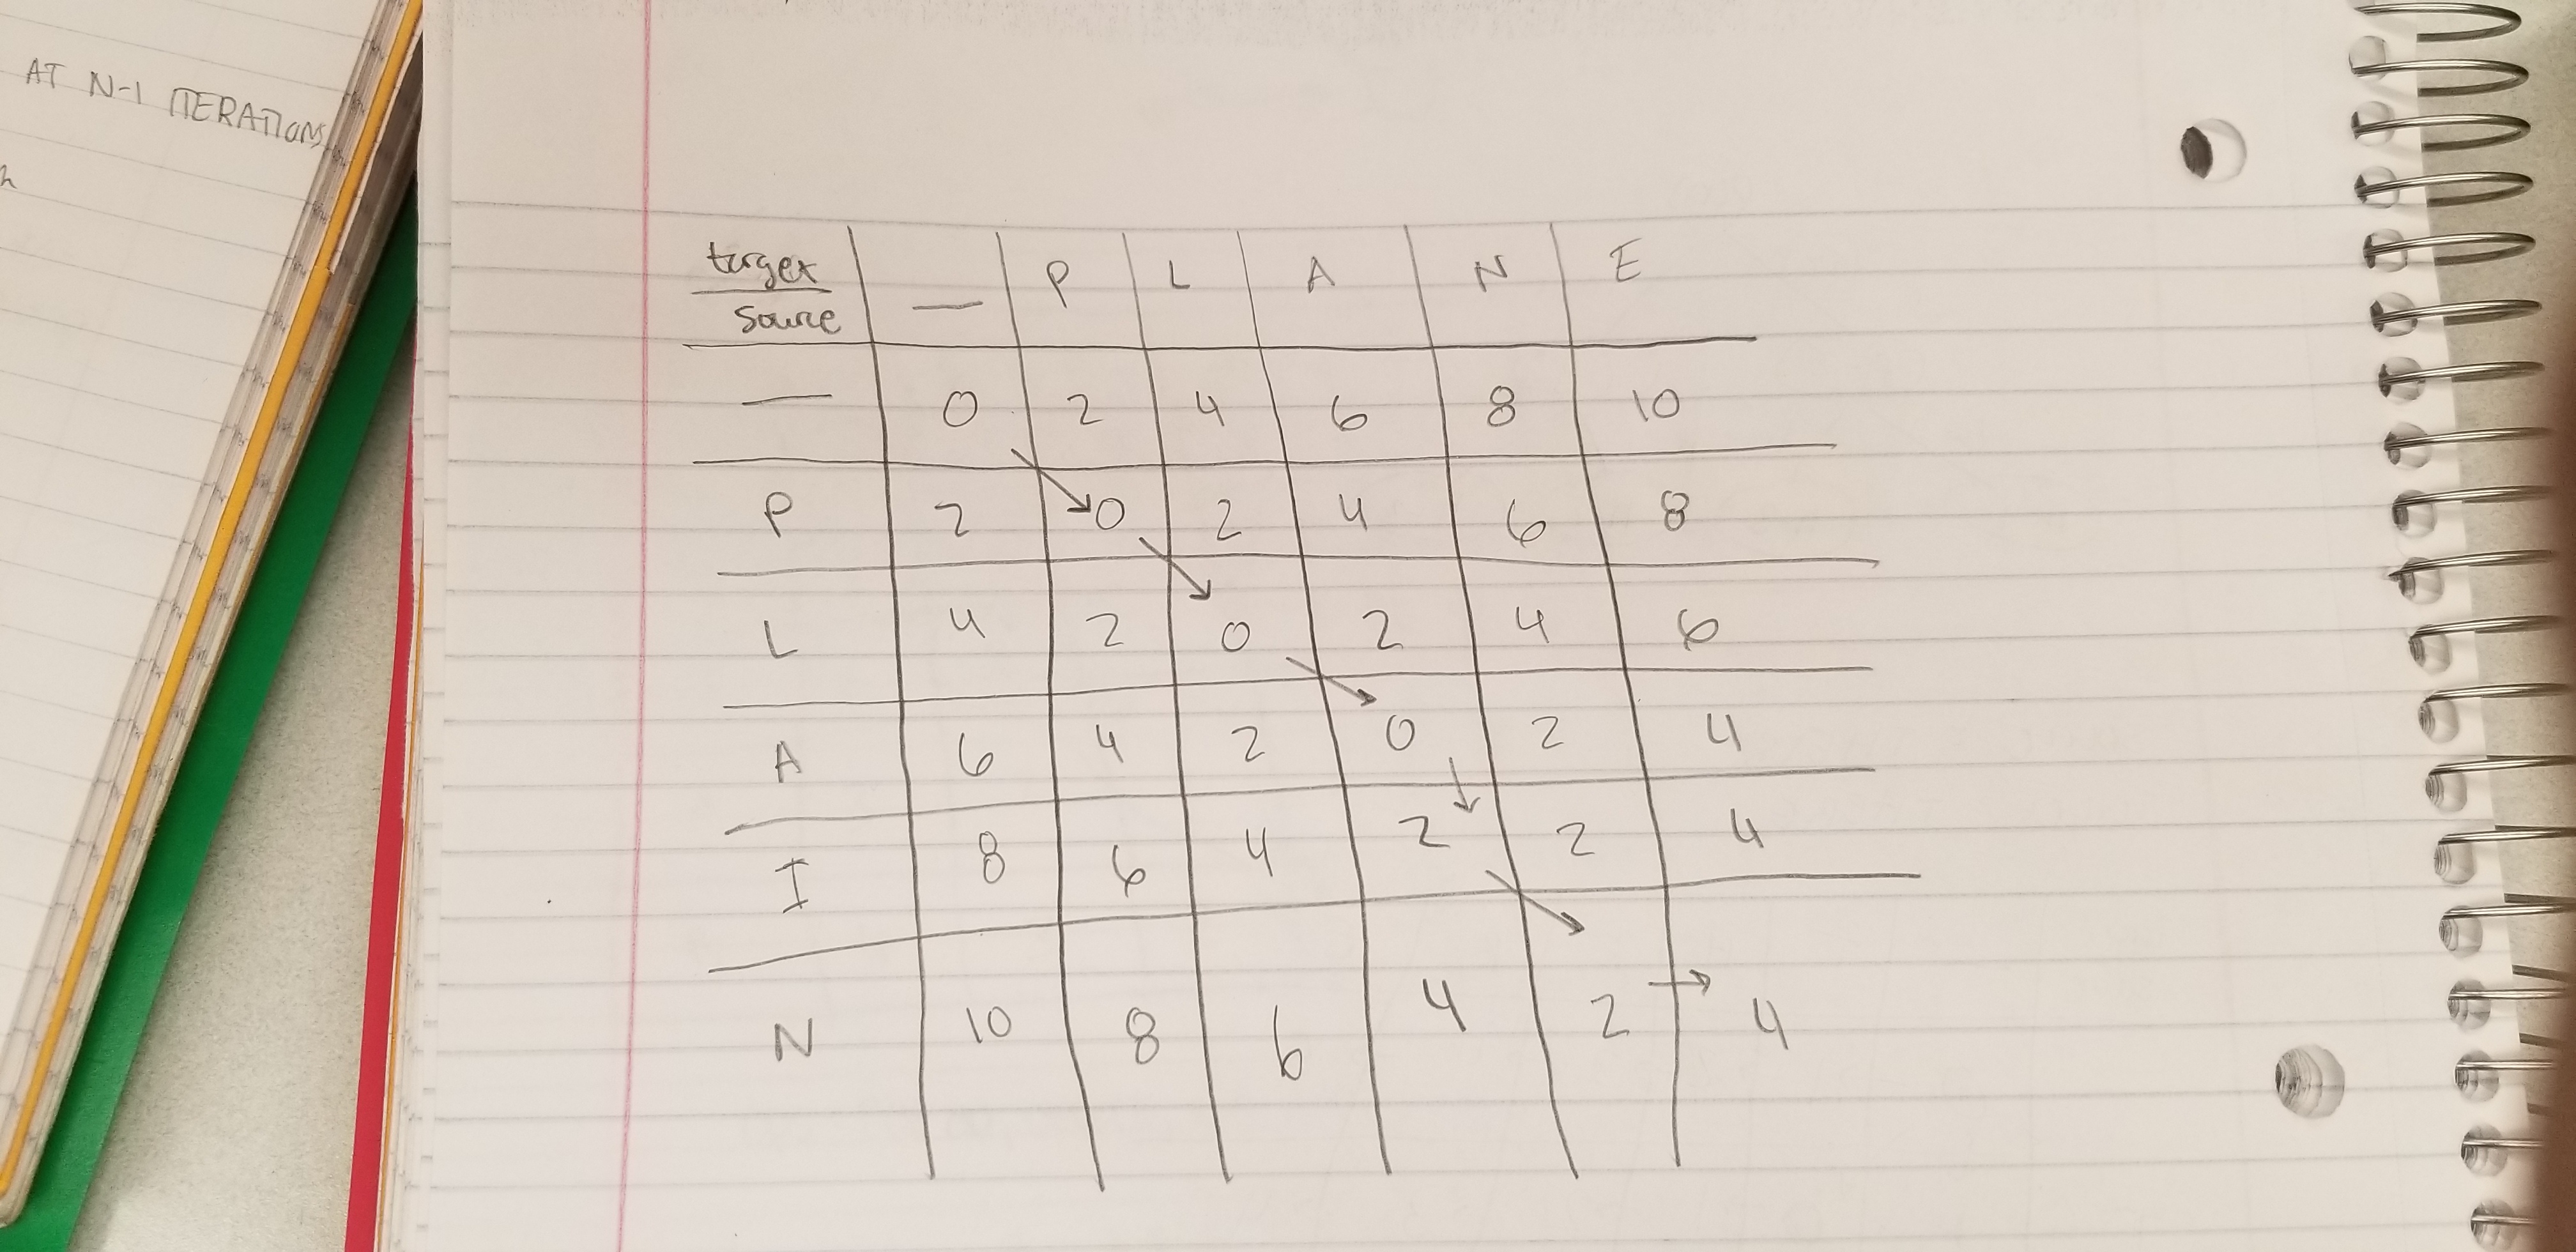 AT N-1 ITERATIONS
h
target — P L A N E
source
— 0 2 4 6 8 10
P 2 0 2 4 6 8
L 4 2 0 2 4 6
A 6 4 2 0 2 4
I 8 6 4 2 2 4
N 10 8 6 4 2 4